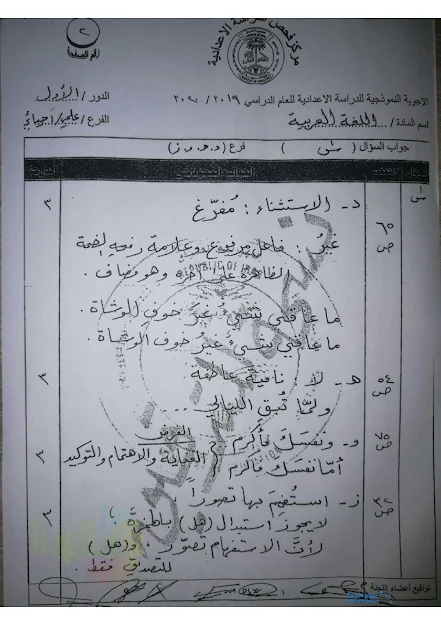 مركز فحص الدراسة الاعدادية
٢
رقم الصفحة
الاجوبة النموذجية للدراسة الاعدادية للعام الدراسي ٢٠١٩ / ٢٠٢٠
الدور / الأول
اسم المادة / اللغة العربية
الفرع / علمي / احيائي
جواب السؤال ( ) فرع ( د، هـ، و، ز )
د- الاستثناء : مُفرّغ
٣
٦٥
ص
غيرُ : فاعل مرفوع وعلامة رفعه الضمة
الظاهرة على آخره وهو مضاف .
ما عاقني شيءٌ غيرُ خوفِ الوشاة .
ما عاقني شيءٌ غيرُ خوف الوشاة .
هـ- لا : نافية عاطفة
٣
٥٤
ص
ولمّا تُبقِ الليالي ..
و- ونفسَكَ فأكرم
الغرض
٧٥
ص
أمّا نفسَك فأكرم
العناية والاهتمام والتوكيد
٣
ز- استُفهِمَ بها تصوراً .
٣٢
ص
لا يجوز استبدال (هل) بالهمزة ،
٣
لأنَّ الاستفهام تصوّر و(هل)
للتصديق فقط .
تواقيع أعضاء اللجنة